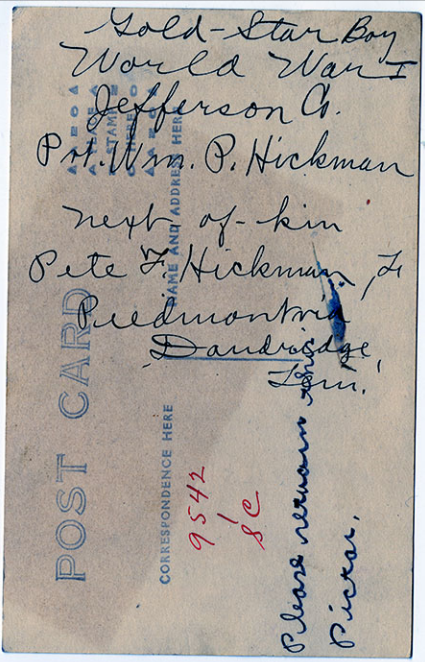 Gold-Star Boy
World War I
Jefferson Co.
Pvt. Wm. P. Hickman
next of-kin
Pete F. Hickman, F
Piedmont via
Dandridge
Tenn.
POST CARD
CORRESPONDENCE HERE
NAME AND ADDRESS HERE
PLACE
STAMP
HERE
9542
1
SC
Please return this
Pictor.